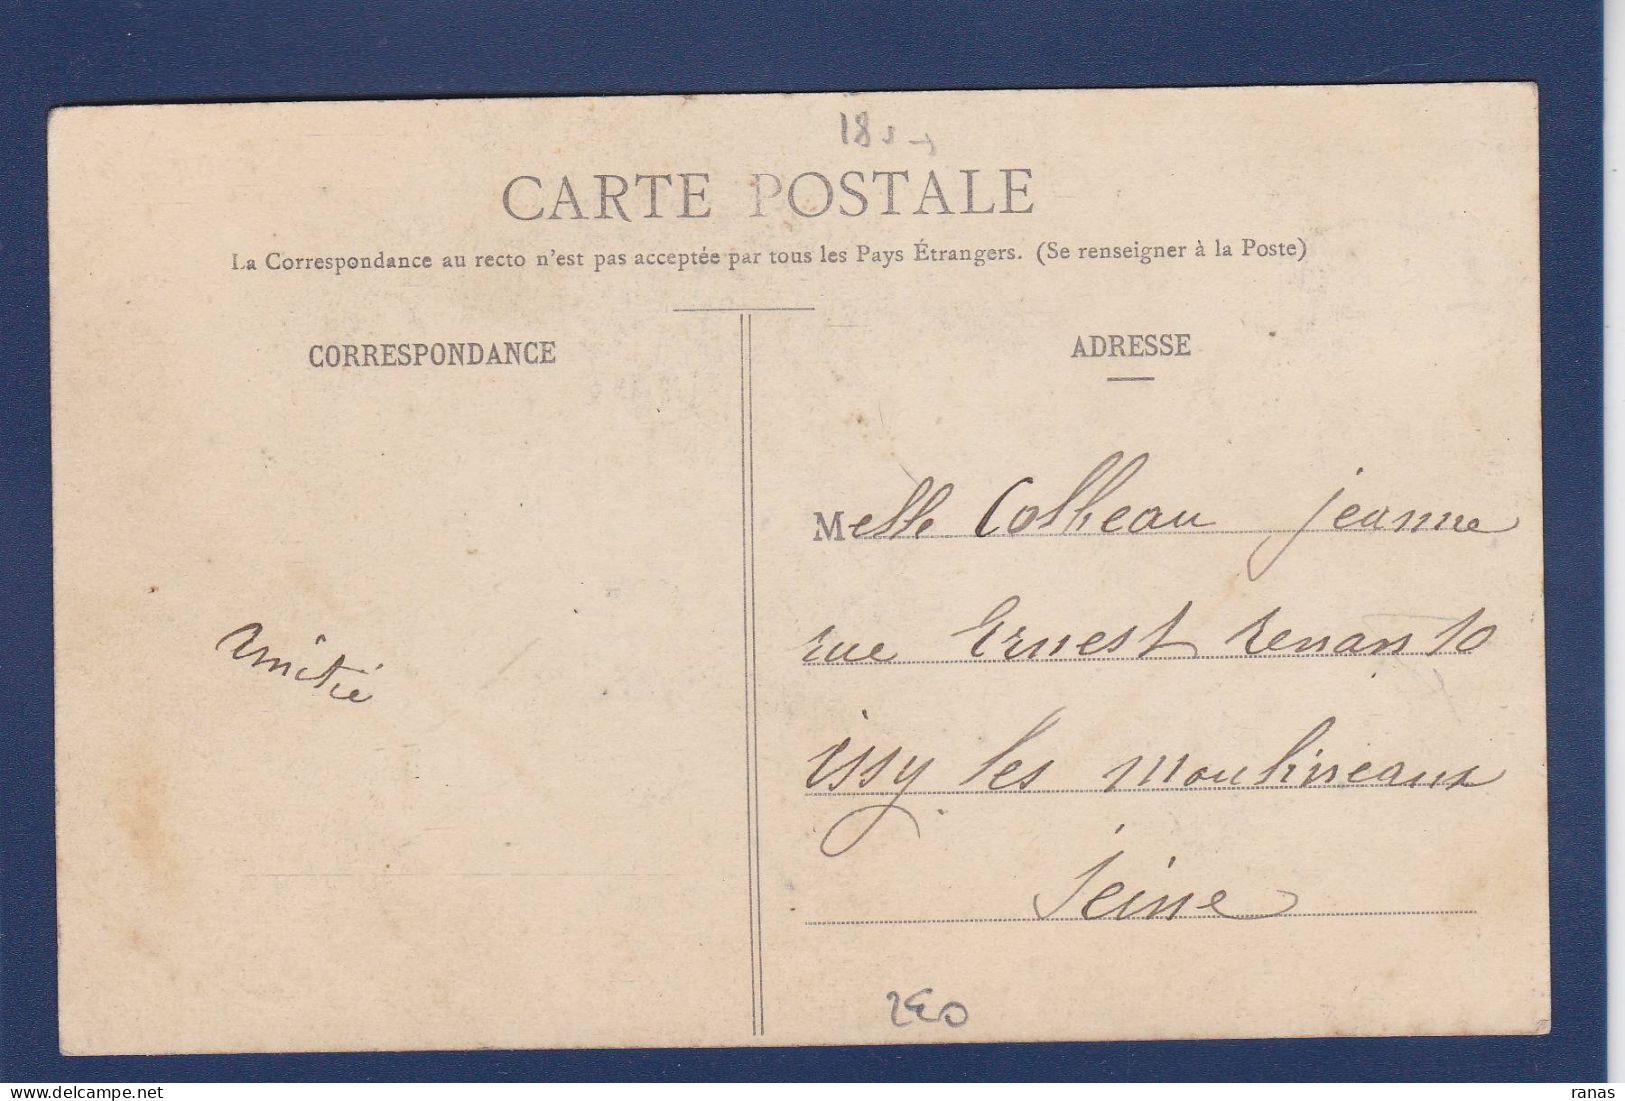 CARTE POSTALE
La Correspondance au recto n'est pas acceptée par tous les Pays Étrangers. (Se renseigner à la Poste)
CORRESPONDANCE
amitié
ADRESSE
Melle Colheau jeanne
rue Ernest renan 10
issy les moulineaux
Seine
ranas